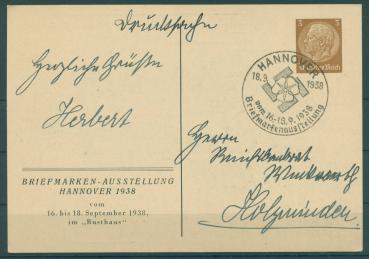 Drucksache
Herzliche Grüße
Herbert
BRIEFMARKEN-AUSSTELLUNG
HANNOVER 1938
vom
16. bis 18. September 1938,
im „Rusthaus"
3 3
Deutsches Reich
HANNOVER
18.9. 1938
vom 16.-18.9.1938
Briefmarkenausstellung
Herrn
Holzminden.